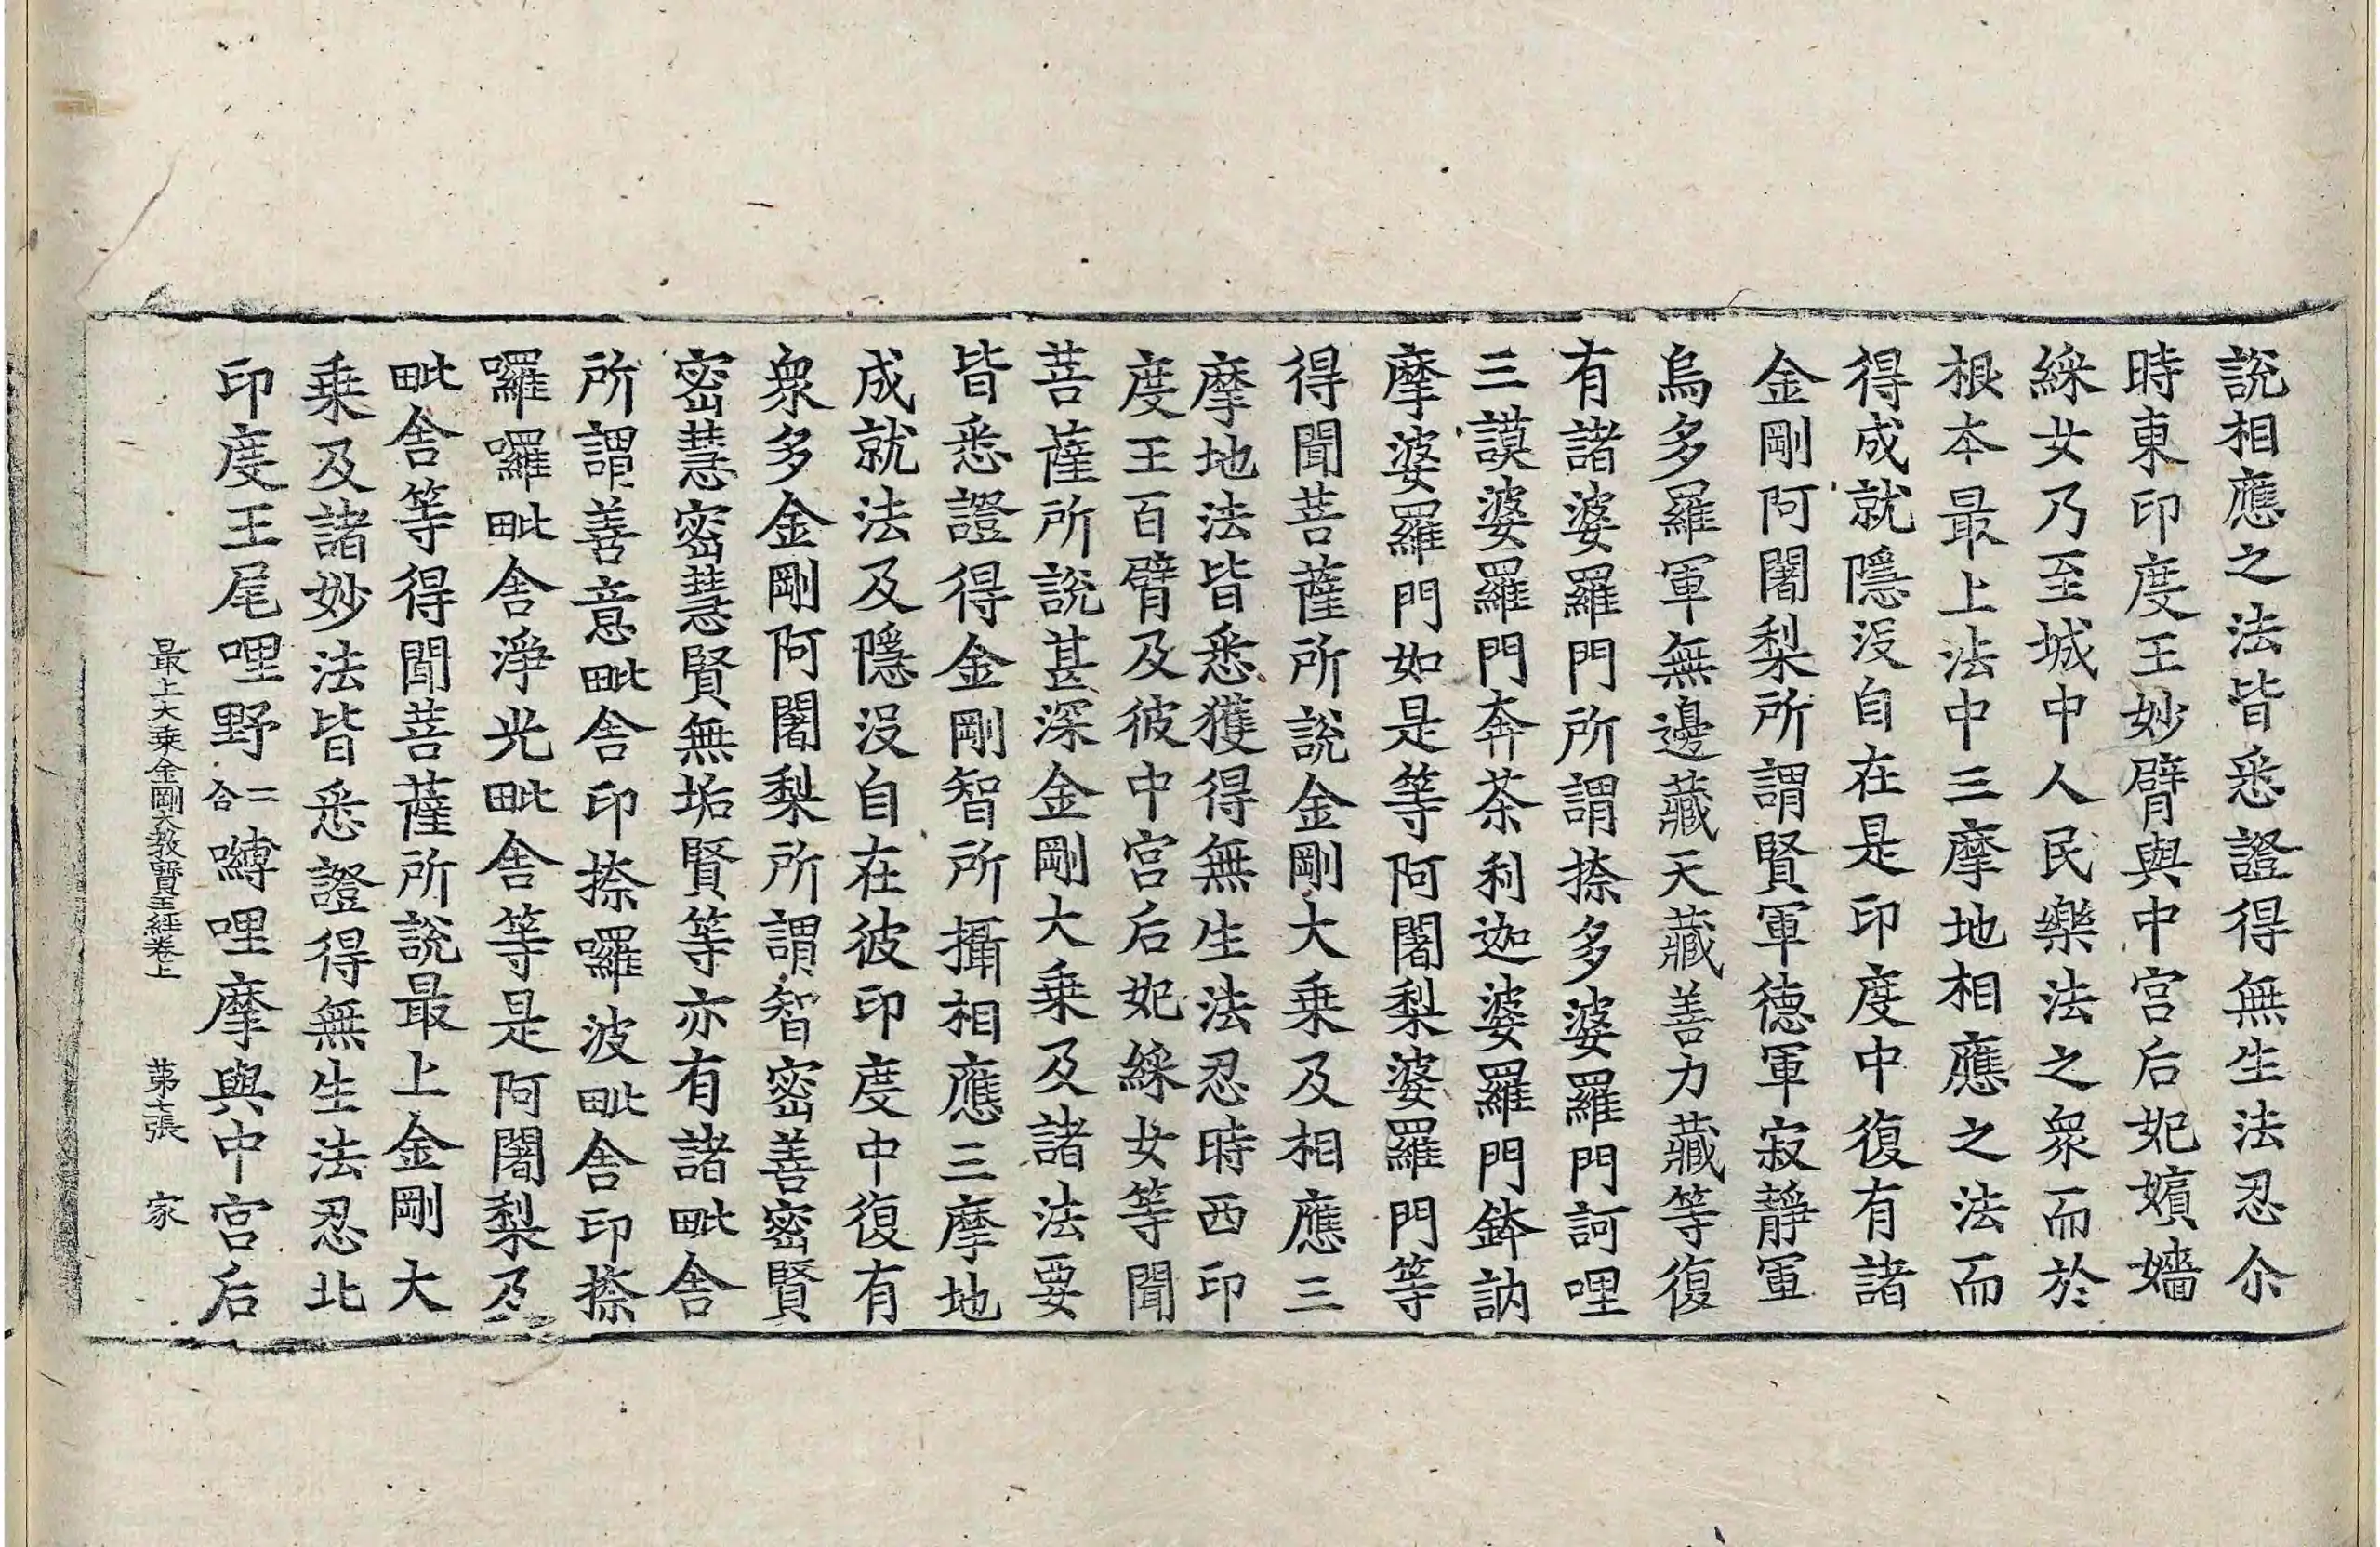 說相應之法皆悉證得無生法忍尒
時東印度王妙臂與中宮后妃嬪嬙
綵女乃至城中人民樂法之衆而於
根本最上法中三摩地相應之法而
得成就隱没自在是印度中復有諸
金剛阿闍梨所謂賢軍德軍寂靜軍
烏多羅軍無邊藏天藏善力藏等復
有諸婆羅門所謂捺多婆羅門訶哩
三謨婆羅門奔荼利迦婆羅門鉢訥
摩婆羅門如是等阿闍梨婆羅門等
得聞菩薩所說金剛大乗及相應三
摩地法皆悉獲得無生法忍時西印
度王百臂及彼中宮后妃綵女等聞
菩薩所說甚深金剛大乗及諸法要
皆悉證得金剛智所攝相應三摩地
成就法及隱没自在彼印度中復有
衆多金剛阿闍梨所謂智密善密賢
密慧密慧賢無垢賢等亦有諸毗舍
所謂善意毗舍印捺囉波毗舍印捺
囉囉毗舍淨光毗舍等是阿闍梨及
毗舍等得聞菩薩所說最上金剛大
乗及諸妙法皆悉證得無生法忍北
印度王尾哩野二合嚩哩摩與中宮后
最上大乗金剛大教寶王經卷上 第七張 家